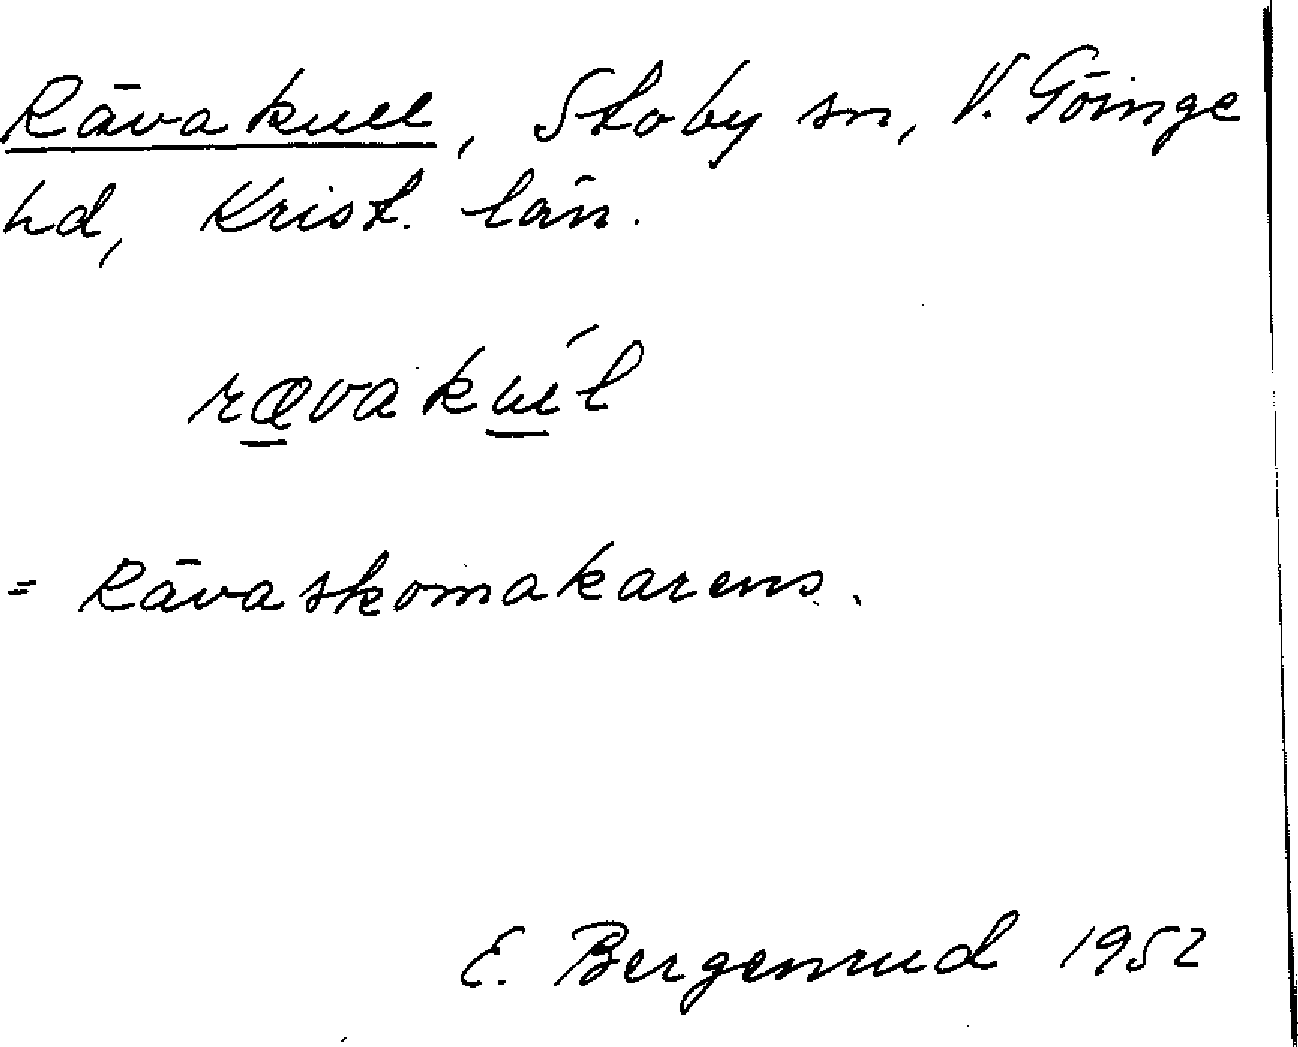 Rävakull, Stoby sn, V. Göinge
hd, Krist. län.
rævakúl
= Rävaskomakarens.
E. Bergenrud 1952